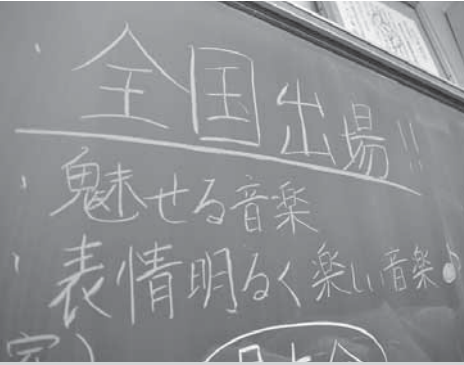 、全国出場!!
、魅せる音楽
、表情明るく楽しい音楽♪